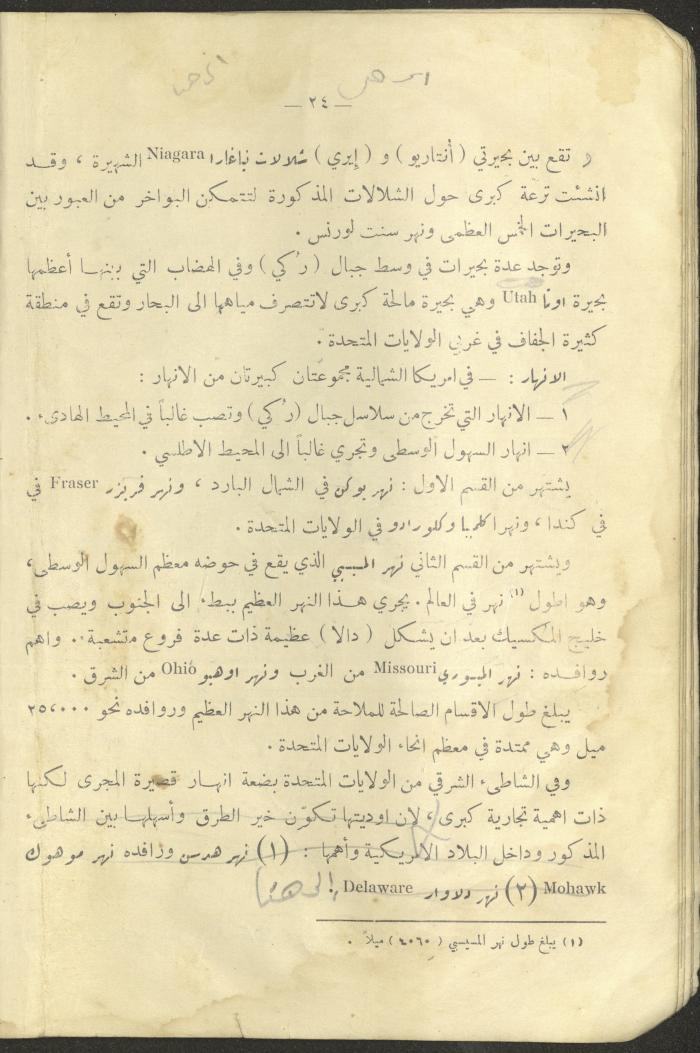 الى هن
الى هنا
— ٢٤ —
تقع بين بحيرتي ( أنتاريو ) و ( إيري ) شلالات نياغارا Niagara الشهيرة ، وقد
انشئت ترعة كبرى حول الشلالات المذكورة لتتمكن البواخر من العبور بين
البحيرات الخمس العظمى ونهر سنت لورنس .
وتوجد عدة بحيرات في وسط جبال ( رُكي ) وفي الهضاب التي بينها أعظمها
بحيرة اوتا Utah وهي بحيرة مالحة كبرى لاتتصرف مياهها الى البحار وتقع في منطقة
كثيرة الجفاف في غربي الولايات المتحدة .
الانهار : — في امريكا الشمالية مجموعتان كبيرتان من الانهار :
١ — الانهار التي تخرج من سلاسل جبال ( رُكي ) وتصب غالباً في المحيط الهادىء .
٢ — انهار السهول الوسطى وتجري غالباً الى المحيط الاطلسي .
يشتهر من القسم الاول : نهر يوكن في الشمال البارد ، ونهر فريزر Fraser في
في كندا ، ونهرا كلمبيا وكلورادو في الولايات المتحدة .
ويشتهر من القسم الثاني نهر المسيسبي الذي يقع في حوضه معظم السهول الوسطى ،
وهو اطول (١) نهر في العالم . يجري هذا النهر العظيم ببطء الى الجنوب ويصب في
خليج المكسيك بعد ان يشكل ( دالا ) عظيمة ذات عدة فروع متشعبة . واهم
روافده : نهر الميسوري Missouri من الغرب ونهر اوهيو Ohio من الشرق .
يبلغ طول الاقسام الصالحة للملاحة من هذا النهر العظيم وروافده نحو ٢٥،٠٠٠
ميل وهي ممتدة في معظم انحاء الولايات المتحدة .
وفي الشاطىء الشرقي من الولايات المتحدة بضعة انهار قصيرة المجرى لكنها
ذات اهمية تجارية كبرى ، لان اوديتها تكوّن خير الطرق وأسهلها بين الشاطىء
المذكور وداخل البلاد الامريكية وأهمها : (١) نهر هدسن ورافده نهر موهوك
Mohawk (٢) نهر دلاوار Delaware الى هنا
(١) يبلغ طول نهر المسيسبي ( ٤٠٦٠ ) ميلاً .